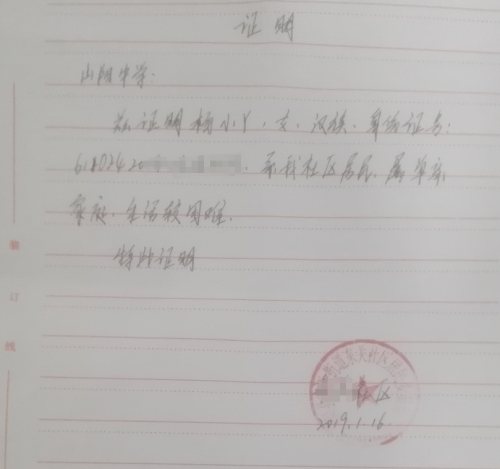 证明
山阳中学:
兹证明杨小丫,女,汉族,身份证号:
6180242,系我社区居民,属单亲
家庭,生活较困难.
特此证明
街道东关社区
社区
2019.1.16
装
订
线